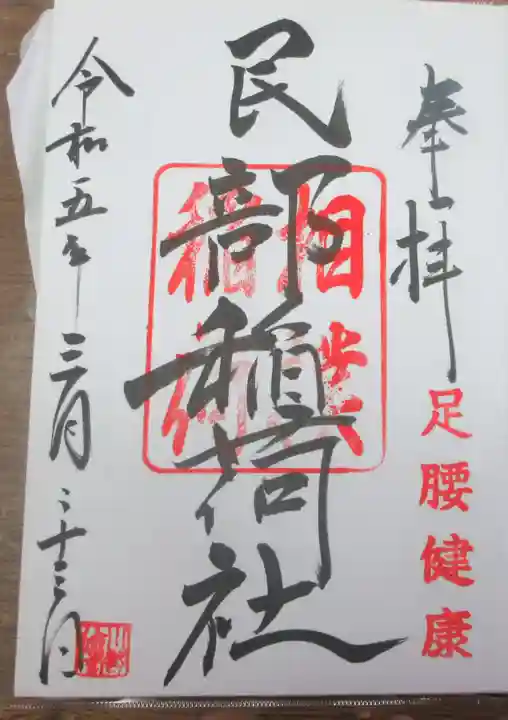 奉拝
足腰健康
民部稲荷社
令和五年三月二十三日